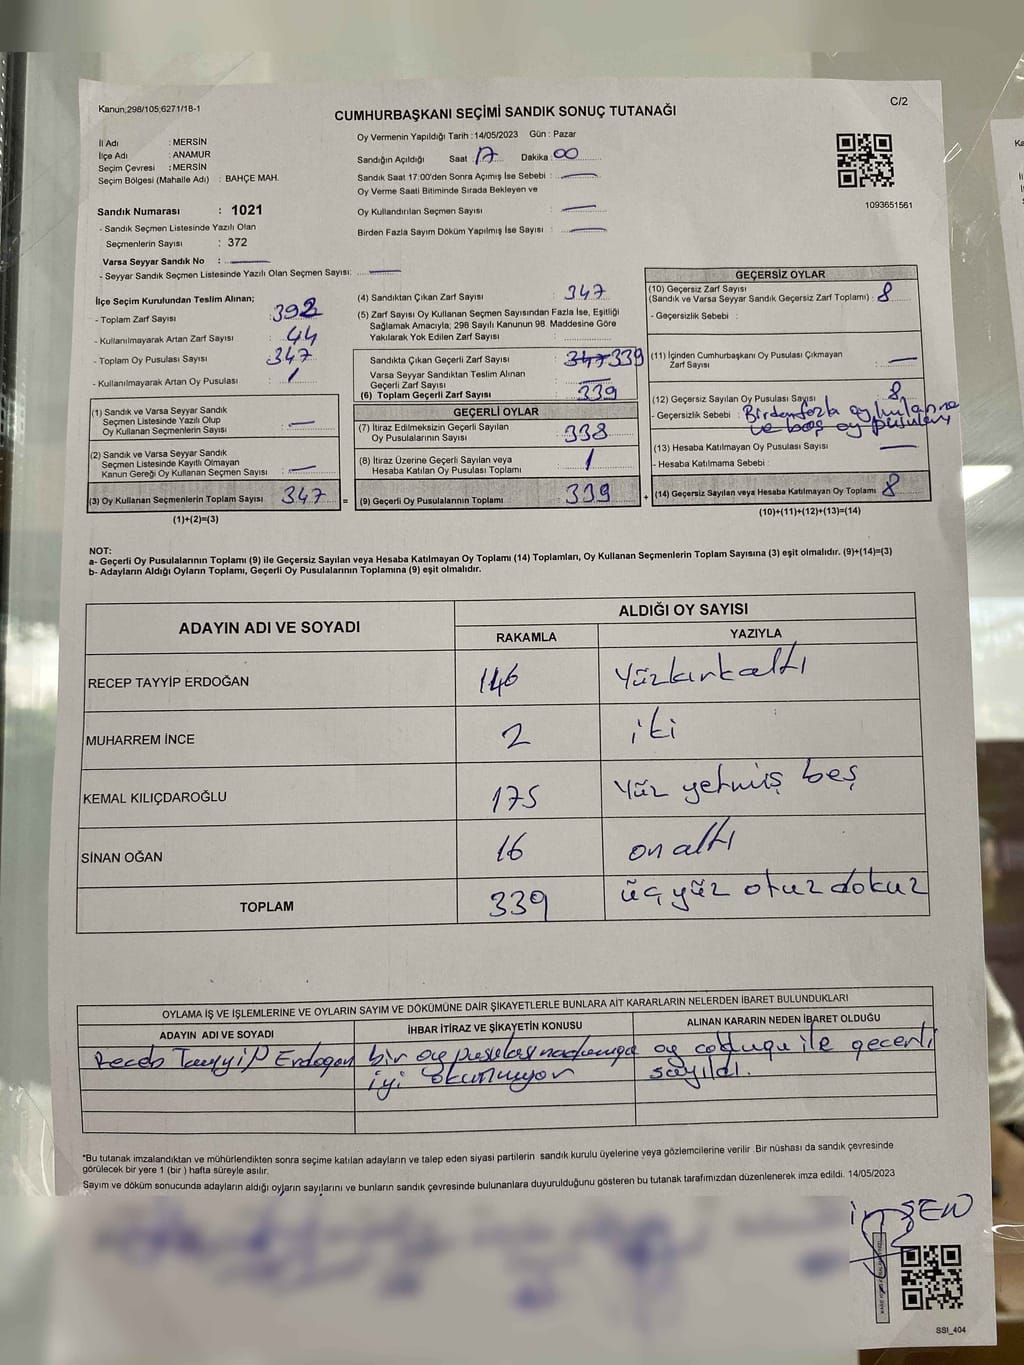 Kanun;298/105;6271/18-1
C/2
CUMHURBAŞKANI SEÇİMİ SANDIK SONUÇ TUTANAĞI
İl Adı : MERSİN
İlçe Adı : ANAMUR
Seçim Çevresi : MERSİN
Seçim Bölgesi (Mahalle Adı) : BAHÇE MAH.
Sandık Numarası : 1021
- Sandık Seçmen Listesinde Yazılı Olan
Seçmenlerin Sayısı : 372
Varsa Seyyar Sandık No :
- Seyyar Sandık Seçmen Listesinde Yazılı Olan Seçmen Sayısı:
Oy Vermenin Yapıldığı Tarih : 14/05/2023 Gün : Pazar
Sandığın Açıldığı Saat : 17 Dakika : 00
Sandık Saat 17:00'den Sonra Açımış İse Sebebi :
Oy Verme Saati Bitiminde Sırada Bekleyen ve
Oy Kullandırılan Seçmen Sayısı
Birden Fazla Sayım Döküm Yapılmış İse Sayısı :
1093651561
İlçe Seçim Kurulundan Teslim Alınan;
- Toplam Zarf Sayısı 392
- Kullanılmayarak Artan Zarf Sayısı : 44
- Toplam Oy Pusulası Sayısı : 347
- Kullanılmayarak Artan Oy Pusulası :
(1) Sandık ve Varsa Seyyar Sandık
Seçmen Listesinde Yazılı Olup
Oy Kullanan Seçmenlerin Sayısı :
(2) Sandık ve Varsa Seyyar Sandık
Seçmen Listesinde Kayıtlı Olmayan
Kanun Gereği Oy Kullanan Seçmen Sayısı :
(3) Oy Kullanan Seçmenlerin Toplam Sayısı : 347 =
(1)+(2)=(3)
(4) Sandıktan Çıkan Zarf Sayısı : 347
(5) Zarf Sayısı Oy Kullanan Seçmen Sayısından Fazla İse, Eşitliği
Sağlamak Amacıyla; 298 Sayılı Kanunun 98. Maddesine Göre
Yakılarak Yok Edilen Zarf Sayısı :
Sandıkta Çıkan Geçerli Zarf Sayısı : 347 339
Varsa Seyyar Sandıktan Teslim Alınan
Geçerli Zarf Sayısı
(6) Toplam Geçerli Zarf Sayısı : 339
GEÇERLİ OYLAR
(7) İtiraz Edilmeksizin Geçerli Sayılan
Oy Pusulalarının Sayısı : 338
(8) İtiraz Üzerine Geçerli Sayılan veya
Hesaba Katılan Oy Pusulası Toplamı : 1
(9) Geçerli Oy Pusulalarının Toplamı : 339 +
GEÇERSİZ OYLAR
(10) Geçersiz Zarf Sayısı
(Sandık ve Varsa Seyyar Sandık Geçersiz Zarf Toplamı) : 8
- Geçersizlik Sebebi :
(11) İçinden Cumhurbaşkanı Oy Pusulası Çıkmayan
Zarf Sayısı :
(12) Geçersiz Sayılan Oy Pusulası Sayısı : 8
- Geçersizlik Sebebi : Birdenfazla oy
ve boş oy pusulası
(13) Hesaba Katılmayan Oy Pusulası Sayısı :
- Hesaba Katılmama Sebebi :
(14) Geçersiz Sayılan veya Hesaba Katılmayan Oy Toplamı : 8
(10)+(11)+(12)+(13)=(14)
NOT:
a- Geçerli Oy Pusulalarının Toplamı (9) ile Geçersiz Sayılan veya Hesaba Katılmayan Oy Toplamı (14) Toplamları, Oy Kullanan Seçmenlerin Toplam Sayısına (3) eşit olmalıdır. (9)+(14)=(3)
b- Adayların Aldığı Oyların Toplamı, Geçerli Oy Pusulalarının Toplamına (9) eşit olmalıdır.
ADAYIN ADI VE SOYADI
ALDIĞI OY SAYISI
RAKAMLA YAZIYLA
RECEP TAYYİP ERDOĞAN 146 Yüzkırkaltı
MUHARREM İNCE 2 iki
KEMAL KILIÇDAROĞLU 175 Yüz yetmiş beş
SİNAN OĞAN 16 on altı
TOPLAM 339 üç yüz otuz dokuz
OYLAMA İŞ VE İŞLEMLERİNE VE OYLARIN SAYIM VE DÖKÜMÜNE DAİR ŞİKAYETLERLE BUNLARA AİT KARARLARIN NELERDEN İBARET BULUNDUKLARI
ADAYIN ADI VE SOYADI İHBAR İTİRAZ VE ŞİKAYETİN KONUSU ALINAN KARARIN NEDEN İBARET OLDUĞU
Recep Tayyip Erdogan bir oy pusulası oy ile gecerli
iyi okunmuyor sayıldı.
*Bu tutanak imzalandıktan ve mühürlendikten sonra seçime katılan adayların ve talep eden siyasi partilerin sandık kurulu üyelerine veya gözlemcilerine verilir. Bir nüshası da sandık çevresinde
görülecek bir yere 1 (bir ) hafta süreyle asılır.
Sayım ve döküm sonucunda adayların aldığı oyların sayılarını ve bunların sandık çevresinde bulunanlara duyurulduğunu gösteren bu tutanak tarafımızdan düzenlenerek imza edildi. 14/05/2023
SSI_404